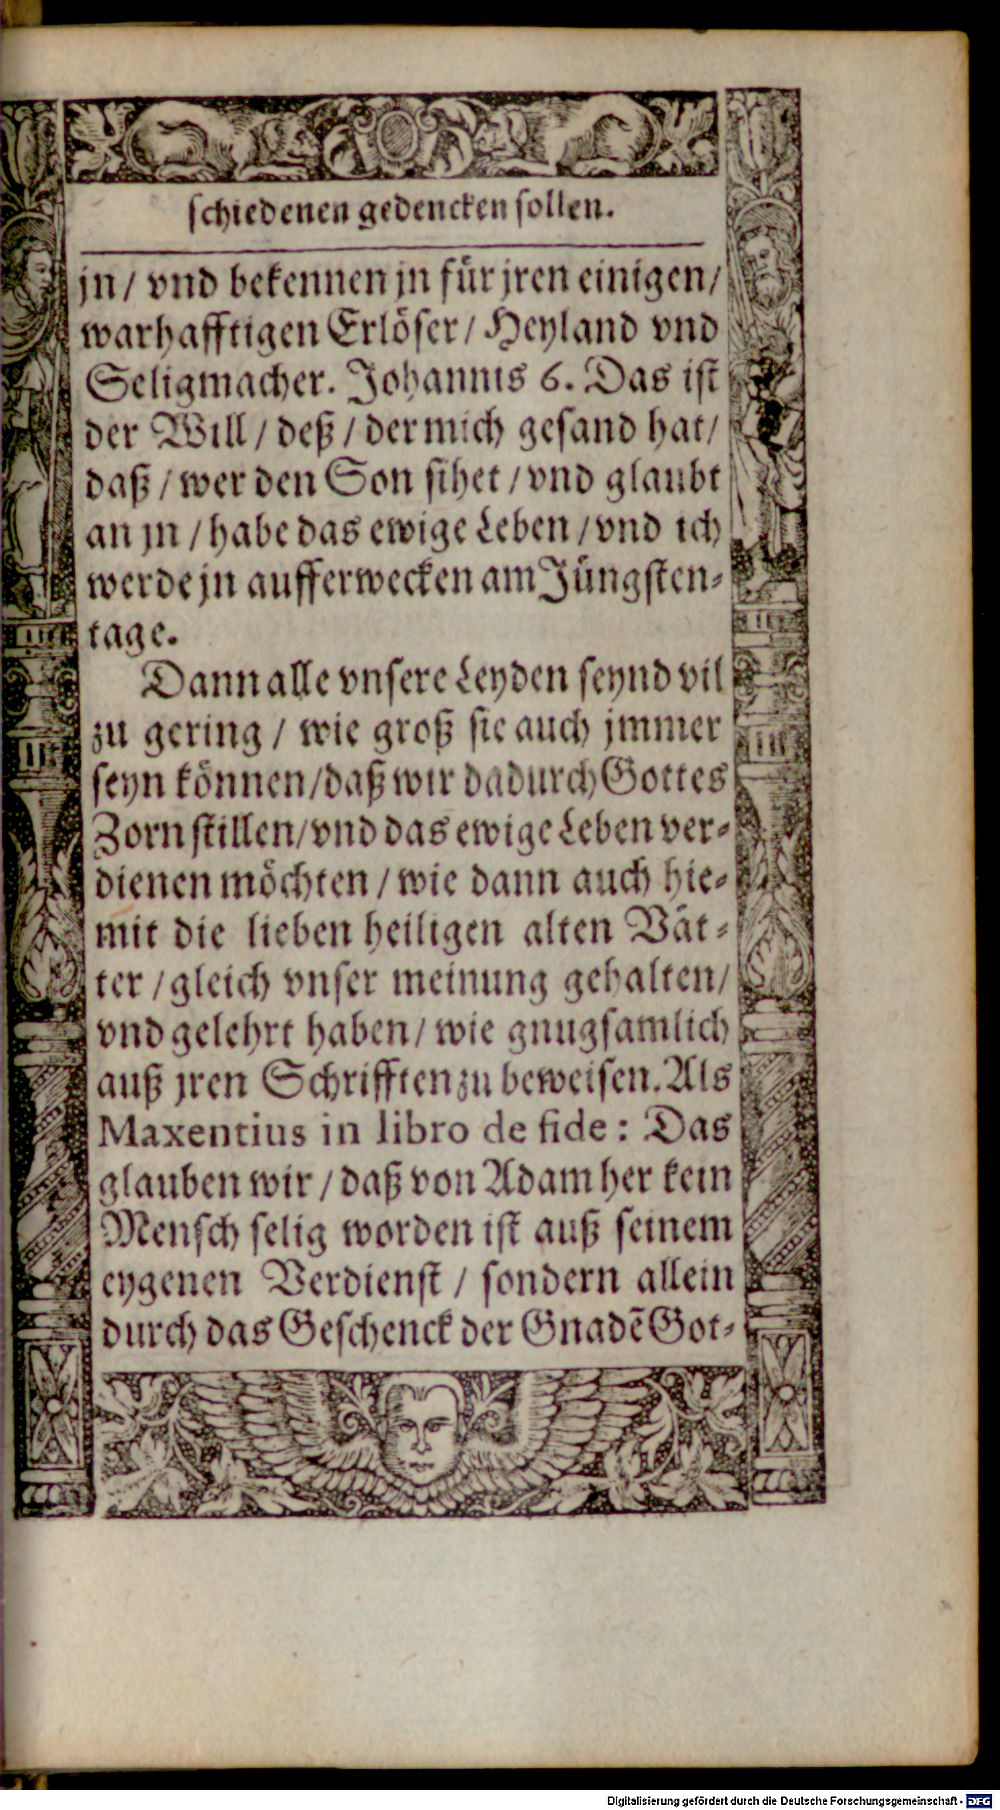 schiedenen gedencken sollen.
jn/ vnd bekennen jn für jren einigen/
warhafftigen Erlöser/ Heyland vnd
Seligmacher. Johannis 6. Das ist
der Will/ deß/ der mich gesand hat/
daß/ wer den Son sihet/ vnd glaubt
an jn/ habe das ewige Leben/ vnd ich
werde jn aufferwecken am Jüngsten-
tage.
Dann alle vnsere Leyden seynd vil
zu gering/ wie groß sie auch jmmer
seyn können/ daß wir dadurch Gottes
Zorn stillen/ vnd das ewige Leben ver-
dienen möchten/ wie dann auch hie-
mit die lieben heiligen alten Vät-
ter/ gleich vnser meinung gehalten/
vnd gelehrt haben/ wie gnugsamlich
auß jren Schrifften zu beweisen. Als
Maxentius in libro de fide: Das
glauben wir/ daß von Adam her kein
Mensch selig worden ist auß seinem
eygenen Verdienst/ sondern allein
durch das Geschenck der Gnadẽ Got-
Digitalisierung gefördert durch die Deutsche Forschungsgemeinschaft - DFG